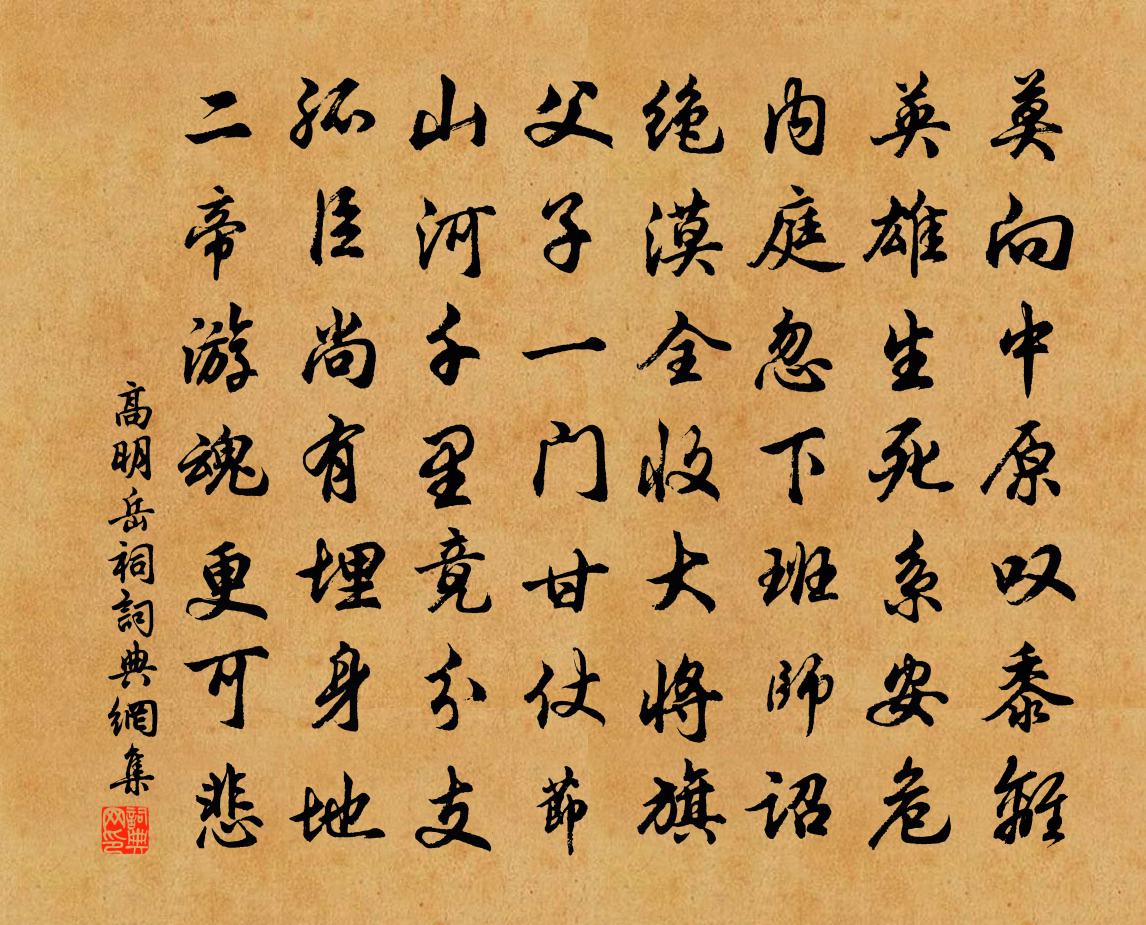 莫向中原叹黍離
英雄生死系安危
内庭忽下班師诏
绝漠全收大将旗
父子一门甘仗節
山河千里竟分支
孤臣尚有埋身地
二帝游魂更可悲
高明岳祠詞典網集
詞典网印